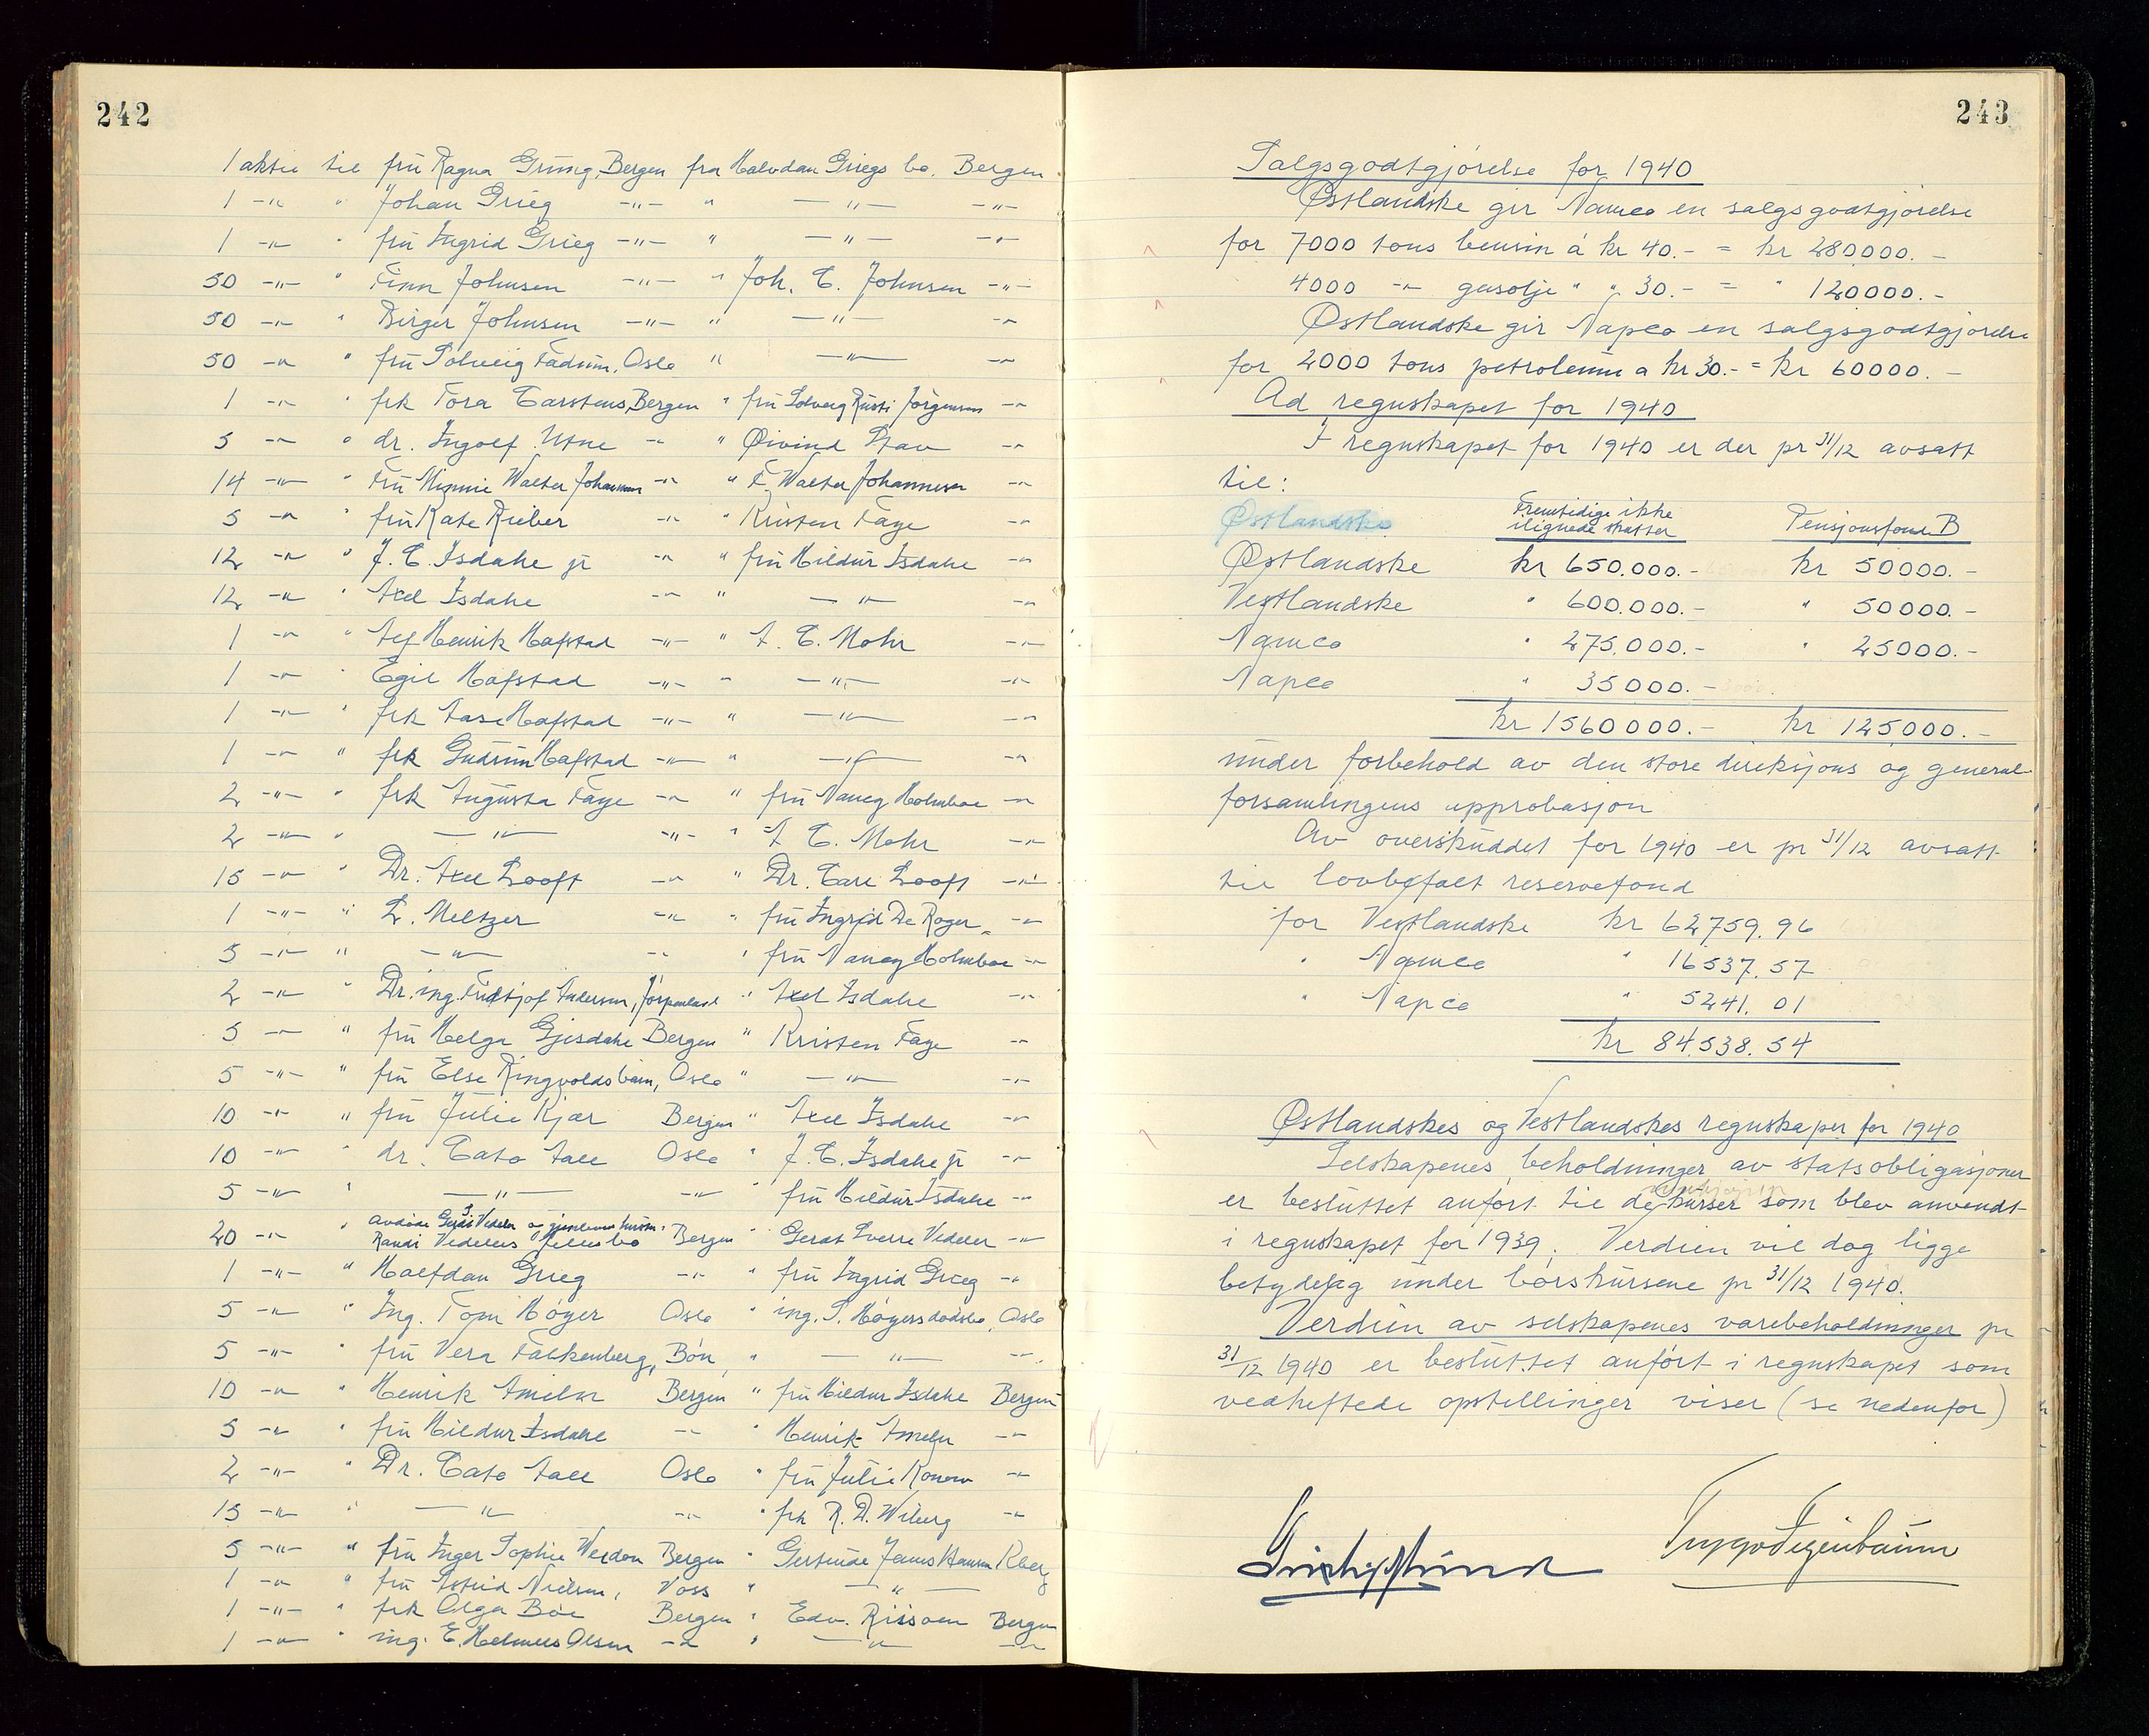 242
1 aktie til frü Ragna Grüng, Bergen fra Halvdan Griegs bo. Bergen
1 -"- " Johan Grieg -"- " -"- -"-
1 -"- " frü Ingrid Grieg -"- " -"- -"-
50 -"- " Finn Johnsen -"- " Joh. C. Johnsen -"-
50 -"- " Birger Johnsen -"- " -"- -"-
50 -"- " frü Solveig Fadüm, Oslo " -"- -"-
1 -"- " frk Tora Carstens, Bergen " frü Solveig Rüsti Jörgensen -"-
5 -"- " dr. Ingolf Utne -"- " Øivind Stav -"-
14 -"- " Frü Minnie Walter Johannesen -"- " F. Walter Johannesen -"-
5 -"- " frü Kate Rieber -"- " Kristen Faye -"-
12 -"- " J. C. Isdahl jr -"- " frü Hildür Isdahl -"-
12 -"- " Axel Isdahl -"- " -"- -"-
1 -"- " Alf Henrik Hafstad -"- " A. C. Mohr -"-
1 -"- " Egil Hafstad -"- " -"- -"-
1 -"- " frk Aase Hafstad -"- " -"- -"-
1 -"- " frk Güdrün Hafstad -"- " -"- -"-
2 -"- " frk Aügüsta Faye -"- " frü Nancy Holmboe -"-
2 -"- " -"- -"- " A C. Mohr -"-
15 -"- " Dr. Axel Looft -"- " Dr. Carl Looft -"-
1 -"- " L. Meltzer -"- " frü Ingrid De Roger -"-
5 -"- " -"- -"- " frü Nancy Holmboe -"-
2 -"- " Dr. ing. Fridtjof Andersen, Jörpeland " Axel Isdahl -"-
5 -"- " frü Helga Gjesdahl Bergen " Kristen Faye -"-
5 -"- " frü Else Ringvolds barn, Oslo " -"- -"-
10 -"- " frü Jülie Kjær Bergen " Axel Isdahl -"-
10 -"- " dr. Cato Aall Oslo " J. C. Isdahl jr -"-
5 -"- " -"- -"- " frü Hildür Isdahl -"-
20 -"- " avdöde Gerdt S. Vedeler og gjenlevende hüstrü Randi Vedelers fellesbo Bergen " Gerdt Sverre Vedeler -"-
1 -"- " Halfdan Grieg -"- " frü Ingrid Grieg -"-
5 -"- " Ing. Tom Höyer Oslo " ing. S. Höyers dödsbo, Oslo
5 -"- " frü Vera Falkenberg, Bön " -"- -"-
10 -"- " Henrik Ameln Bergen " frü Hildur Isdahl Bergen
5 -"- " frü Hildur Isdahl -"- " Henrik Ameln -"-
2 -"- " Dr. Cato Aall Oslo " frü Jülie Konow -"-
15 -"- " -"- -"- " frk R. D. Wiberg -"-
5 -"- " frü Inger Sophie Bergen " Gertrude Hansen
1 -"- " frü Astrid Nielsen, Voss " -"-
1 -"- " frk Olga Böe Bergen " Edv. Riisoen Bergen
1 -"- " ing. E. Helmers Olsen -"- " -"- -"-
243
Salgsgodtgjörelse for 1940
Østlandske gir Namco en salgsgodtgjörelse
for 7000 tons bensin á kr 40.- = kr 280000.-
4000 -"- gasolje " " 30.- = " 120000.-
Østlandske gir Napco en salgsgodtgjörelse
for 2000 tons petroleüm a kr 30.- = kr 60000.-
Ad regnskapet for 1940
I regnskapet for 1940 er der pr 31/12 avsatt
til:
Østlandske Fremtidige ikke ilignede skatter Pensjonsfond B
Østlandske kr 650.000.- kr 50000.-
Vestlandske " 600.000.- " 50000.-
Namco " 275.000.- " 25000.-
Napco " 35000.-
kr 1560000.- kr 125000.-
ünder forbehold av den store direksjons og general-
forsamlingens approbasjon
Av overskuddet for 1940 er pr 31/12 avsatt
til lovbefalt reservefond
for Vestlandske kr 62759.96
" Namco " 16537.57
" Napco " 5241.01
kr 84.538.54
Østlandskes og Vestlandskes regnskaper for 1940
Selskapenes beholdninger av statsobligasjoner
er beslüttet anfört til de kürser som blev anvendt
i regnskapet for 1939. Verdien vil dog ligge
betydelig ünder börskürsene pr 31/12 1940.
Verdien av selskapenes varebeholdninger pr
31/12 1940 er beslüttet anfört i regnskapet som
vedheftede opstillinger viser (se nedenfor)